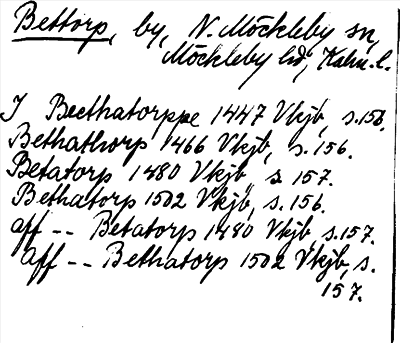 Bettorp, by, N. Möckleby sn,
Möckleby hd, Kalm. l.
I Beethatorppe 1447 Vkjb, s. 156.
Bethathorp 1466 Vkjb, s. 156.
Betatorp 1480 Vkjb, s 157.
Bethatorp 1502 Vkjb, s. 156.
aff -- Betatorp 1480 Vkjb, s. 157.
aff -- Bethatorp 1502 Vkjb, s.
157.